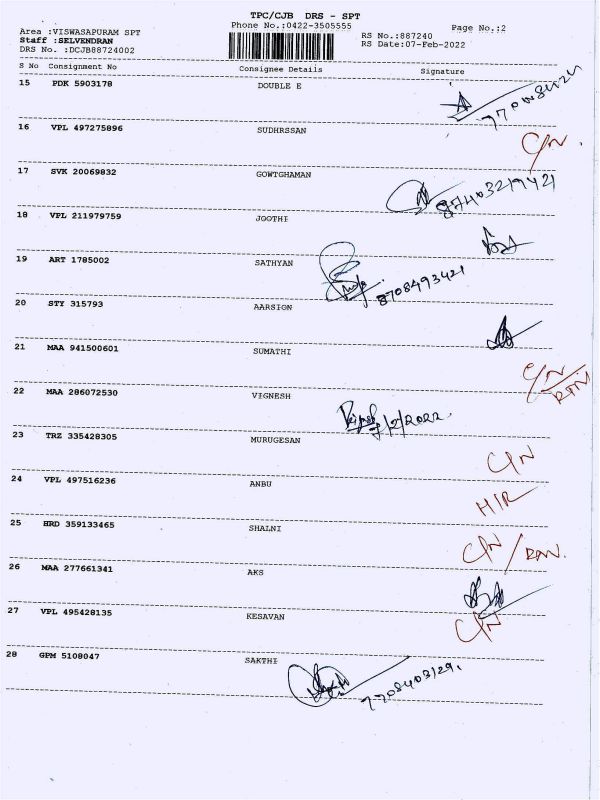 TPC/CJB DRS - SPT
Phone No.:0422-3505555
Page No.:2
Area :VISWASAPURAM SPT
Staff :SELVENDRAN
DRS No. :DCJB88724002
RS No.:887240
RS Date:07-Feb-2022
S No Consignment No Consignee Details Signature
15 PDK 5903178 DOUBLE E
16 VPL 497275896 SUDHRSSAN
C/N.
17 SVK 20069832 GOWTGHAMAN
18 VPL 211979759 JGOTHI
19 ART 1785002 SATHYAN
8708493421
20 STY 315793 AARSION
21 MAA 941500601 SUMATHI
C/N
22 MAA 286072530 VIGNESH
7/2/2022.
23 TRZ 335428305 MURUGESAN
C/N
24 VPL 497516236 ANBU
H/R
25 HRD 359133465 SHALNI
C/N /
26 MAA 277661341 AKS
27 VPL 495428135 KESAVAN
C/N
28 GPM 5108047 SAKTHI